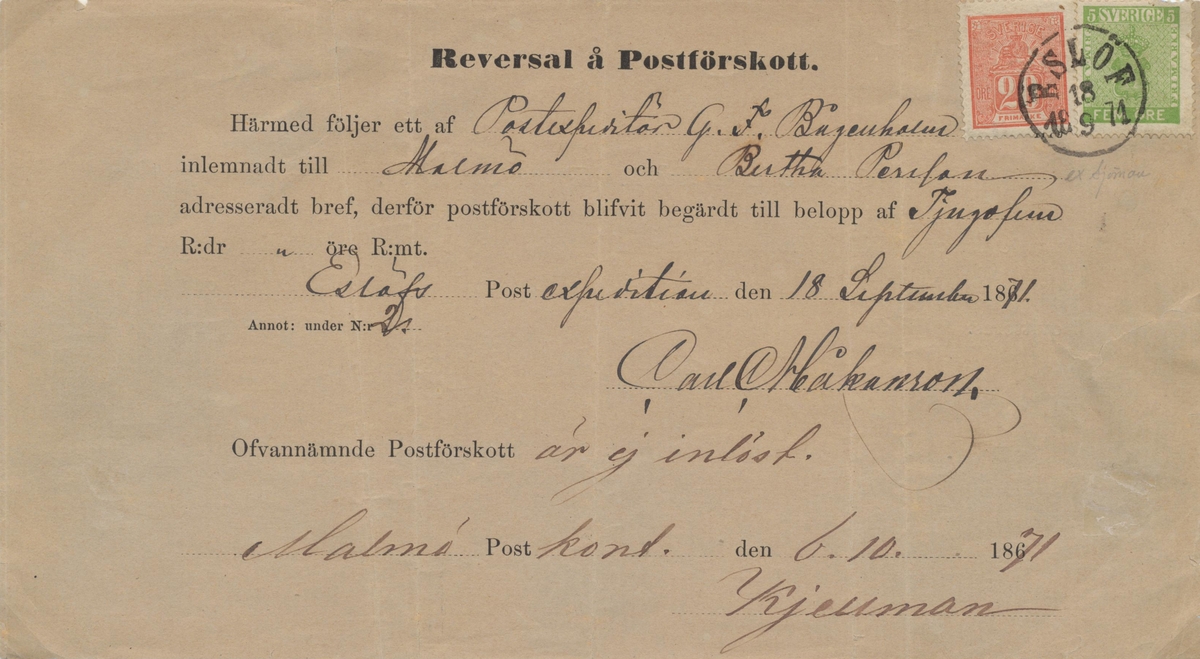 Reversal å Postförskott.
SVERIGE
ÖRE 20
FRIMÄRKE
5 SVERIGE 5
FEM ÖRE
ESLÖF
18
9
1871
Härmed följer ett af Postexpeditör G. F. Bagenholm
inlemnadt till Malmö och Bertha Persson
ex Sjöman
adresseradt bref, derför postförskott blifvit begärdt till belopp af Tjugofem
R:dr " öre R:mt.
Eslöfs Post expedition den 18 September 1871.
Annot: under N:r 2.
Carl Håkanson.
Ofvannämnde Postförskott är ej inlöst.
Malmö Post kont. den 6. 10. 1871
Kjellman